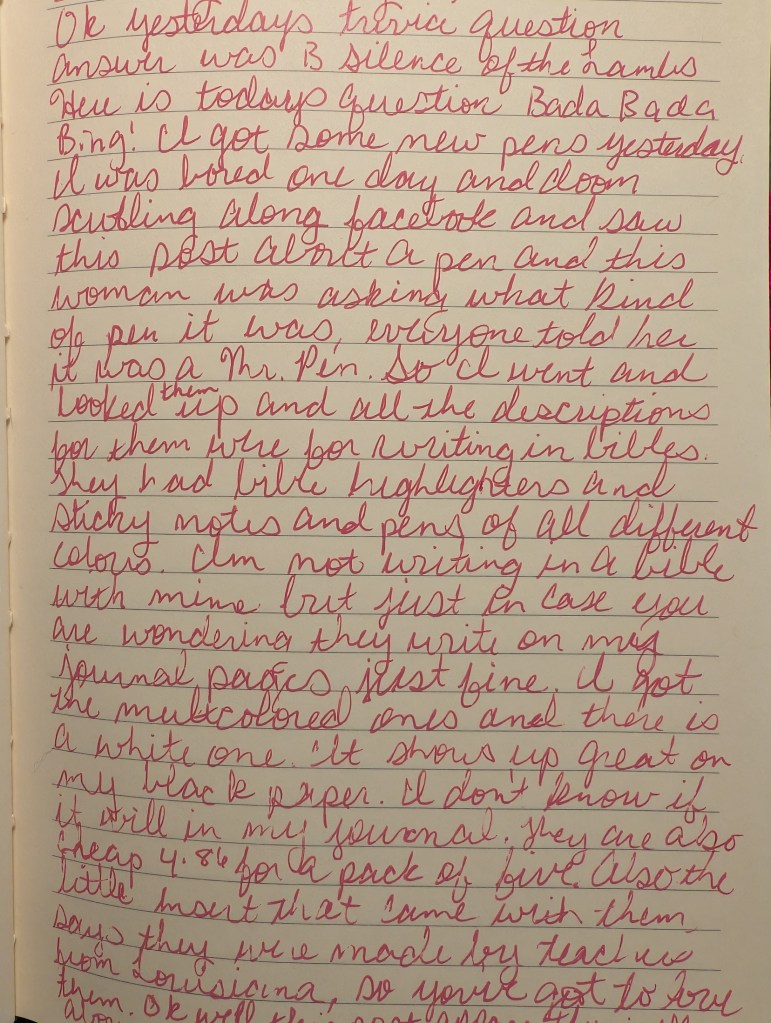 Ok yesterdays trivia question
answer was B Silence of the Lambs
Here is todays question Bada Bada
Bing! I got some new pens yesterday.
I was bored one day and doom
scrolling along facebook and saw
this post about a pen and this
woman was asking what kind
of pen it was, everyone told her
it was a Mr. Pen. So I went and
looked them up and all the descriptions
for them were for writing in bibles.
They had bible highlighters and
sticky notes and pens of all different
colors. Im not writing in a bible
with mine but just in case you
are wondering they write on my
journal pages just fine. I got
the multicolored ones and there is
a white one. It shows up great on
my black paper. I don't know if
it will in my journal. They are also
cheap 4.86 for a pack of five. Also the
little insert that came with them
says they were made by teachers
from Louisiana, so you've got to love
them. Ok well this